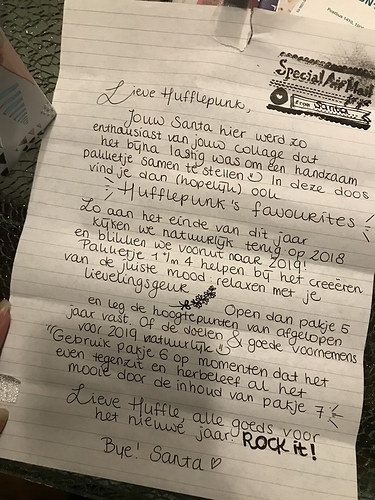 Special Air Mail
FROM Santa...
Lieve Hufflepunk,
Jouw Santa hier werd zo
enthusiast van jouw collage dat
het bijna lastig was om een handzaam
pakketje samen te stellen. In deze doos
vind je dan (hopelijk) ook
Hufflepunk's favourites
Zo aan het einde van dit jaar
kijken we natuurlijk terug op 2018
en blikken we vooruit naar 2019!
Pakketje 1 t/m 4 helpen bij het creeëren
van de juiste mood: relaxen met je
lievelingsgeur
Open dan pakje 5
en leg de hoogtepunten van afgelopen
jaar vast. Of de doelen & goede voornemens
voor 2019 natuurlijk
Gebruik pakje 6 op momenten dat het
even tegenzit en herbeleef al het
moois door de inhoud van pakje 7
Lieve Huffle, alle goeds voor
het nieuwe jaar, ROCK it!
Bye! Santa ♡